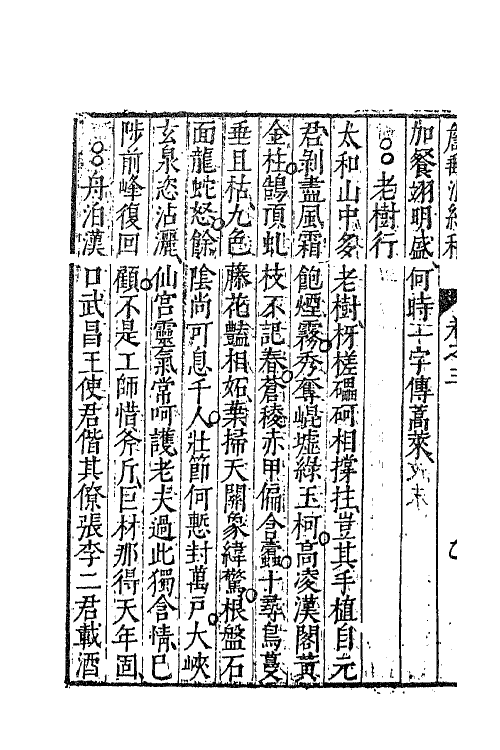 卷之三
加餐翊明盛何時一字傳蒿萊
老樹行
太和山中多老樹枒槎礧砢相撐拄豈其手植自元
君剥盡風霜飽煙霧秀奪崐墟綠玉柯高凌漢閣黃
金柱鵠頂虬枝不記春蒼稜赤甲偏含蠹十尋鳥蔓
垂且枯九色藤花豔相妬葉掃天關象緯驚根盤石
面龍蛇怒餘陰尚可息千人壯節何慙封萬戶大峽
玄泉恣沾灑仙宮靈氣常呵護老夫過此獨含情已
陟前峰復回顧不是工師惜斧斤巨材那得天年固
舟泊漢口武昌王使君偕其僚張李二君載酒